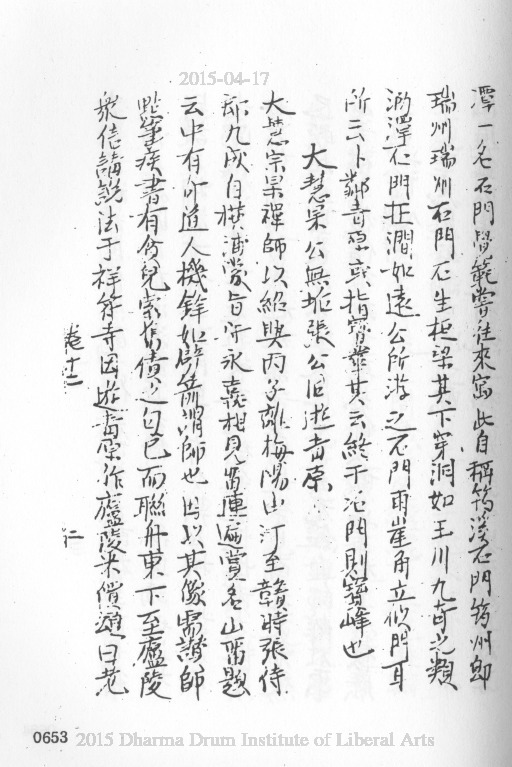 2015-04-17
潭一名石門習範嘗往來寓此自稱筠溪石門筠州即
瑞州瑞州石門石生桓梁其下穿洞如玉川九奇之類
泐潭石門在澗如遠公所游之石門兩崖角立似門耳
所云卜鄰青原或指寶華其云終于石門則寶峰也
大慧杲公無垢張公同遊青原
大慧宗杲禪師以紹興丙子離梅陽由汀至贛時張侍
郎九成自橫浦蒙旨守永嘉相見留連遍賞名山留題
云中有外道人機鋒如劈箭謂師也因以其像需讚師
點筆疾書有弇兒索舊債之句已而聯舟東下至廬陵
眾信請說法于祥符寺因遊青原作廬陵米價頌曰老
卷十二
0653 2015 Dharma Drum Institute of Liberal Arts